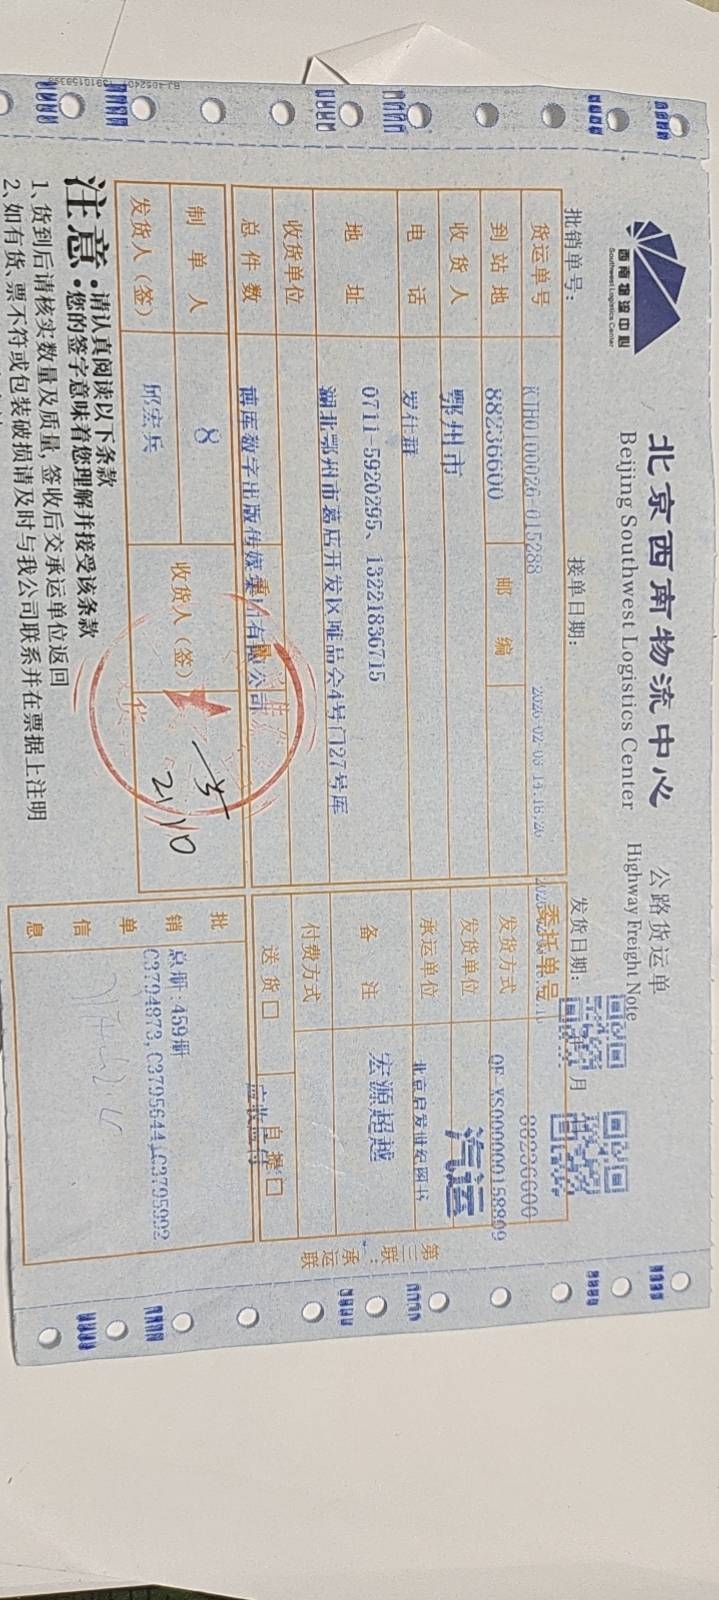 西南物流中心
Southwest Logistics Center
北京西南物流中心 公路货运单
Beijing Southwest Logistics Center Highway Freight Note
批销单号： 接单日期： 发货日期： 月
货运单号 KTH0100026-015288 2026-02-03 14:18:26 委托单号 88236600
到站地 88236600 邮编 发货方式 QF-YS0000000158809
收货人 鄂州市 发货单位 汽运
电话 罗仕群 承运单位 北京启发世纪图书
地址 0711-5920295、13221836715 备注 宏源超越
湖北鄂州市葛店开发区唯品会4号门27号库
收货单位 付费方式
总件数 博库数字出版传媒集团有限公司 送货□ 自提□
制单人 8 收货人（签）
发货人（签） 邱宏兵 21/10
批销单信息 总册:459册
C3794873,C3795644,C3795992
第三联：承运联
注意：
·请认真阅读以下条款
·您的签字意味着您理解并接受该条款
1、货到后请核实数量及质量,签收后交承运单位返回
2、如有货、票不符或包装破损请及时与我公司联系并在票据上注明